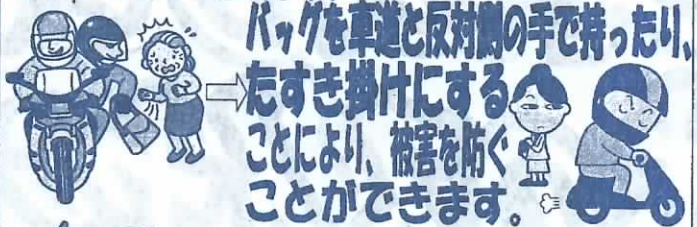 バッグを車道と反対側の手で持ったり、
たすき掛けにする
ことにより、被害を防ぐ
ことができます。